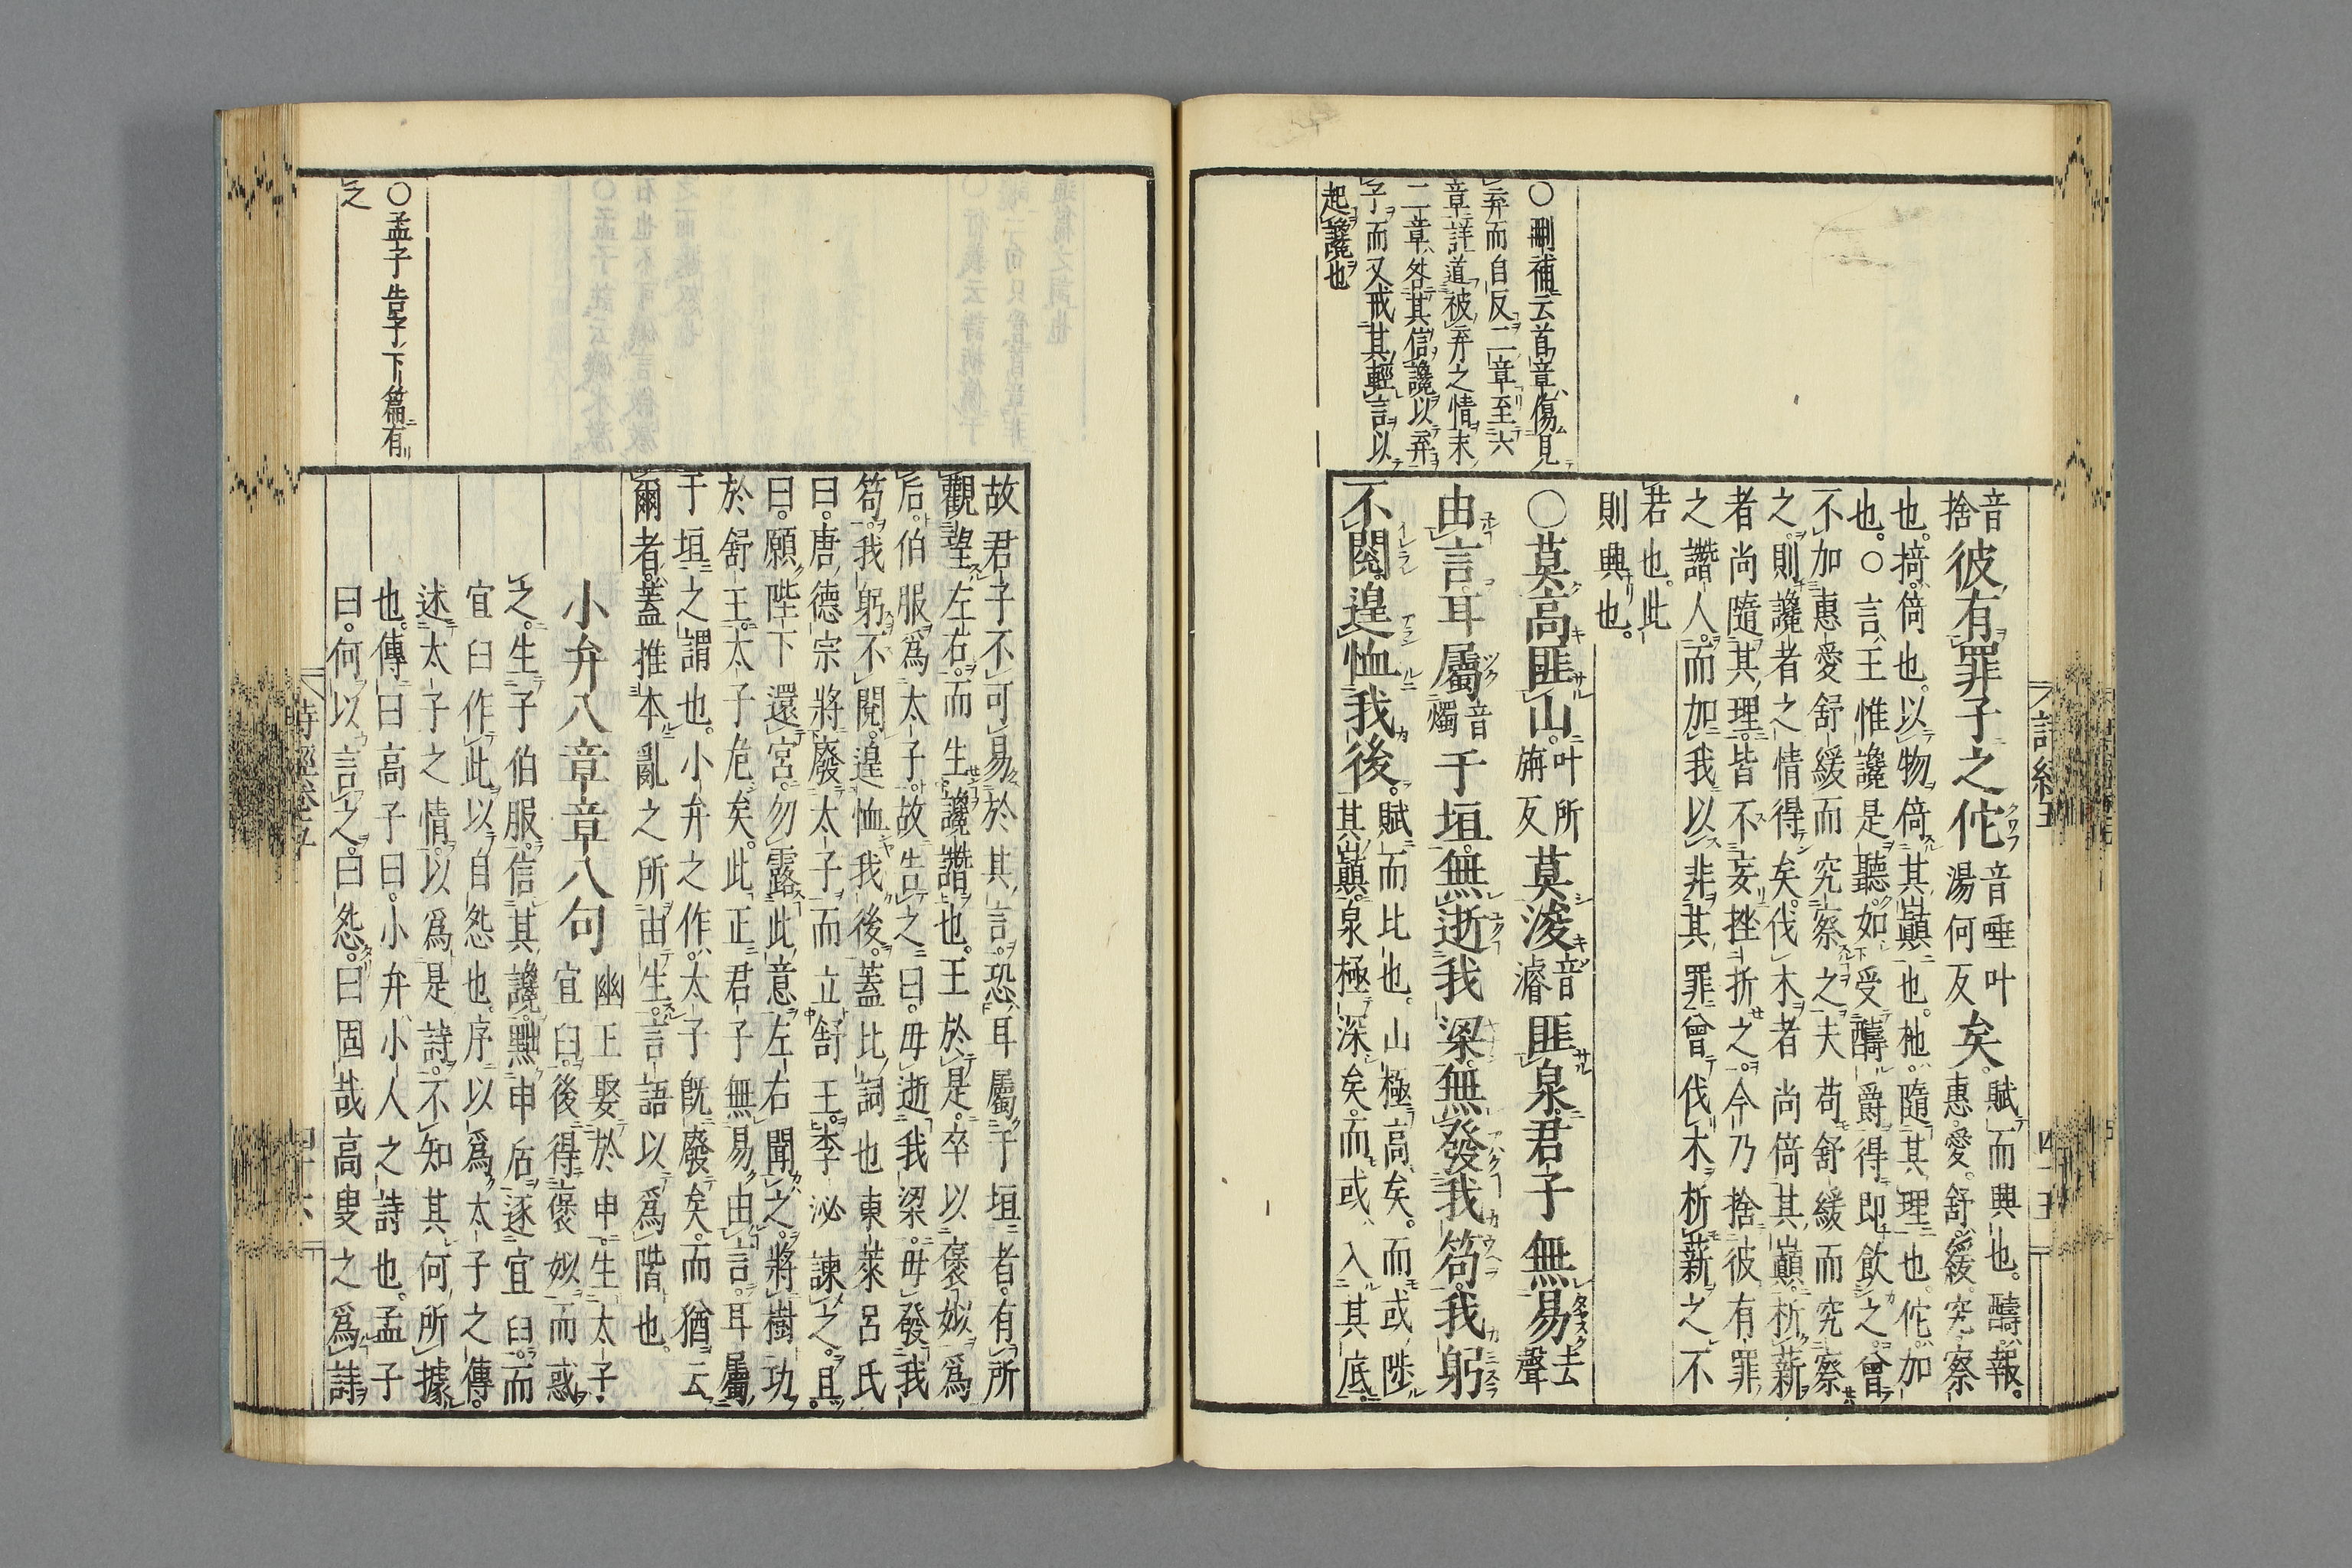 音捨彼有罪子之佗音唾叶湯何反矣。賦而興也。醻報。惠愛。舒緩。究察
也。掎倚也。以物倚其巔也。杝隨其理也。佗加
也。○言王惟讒是聽。如受醻爵得即飲之。曾
不加惠愛舒緩而究察之。夫苟舒緩而究察
之。則讒者之情得矣。伐木者尚倚其巔。析薪
者尚隨其理。皆不妄挫折之。今乃捨彼有罪
之譖人。而加我以非其罪。曾伐木析薪之不
若也。此
則興也。
○刪補云首章傷見
弃而自反二章至六
章詳道彼弃之情末
二章咎其信讒以弃
子而又戒其輕言以
起讒也
○莫高匪山。叶所旃反莫浚音濬匪泉。君子無易去聲
由言。耳屬音燭于垣。無逝我梁。無發我笱。我躬
不閱。遑恤我後。賦而比也。山極高矣。而或陟其巔。泉極深矣。而或入其底。
故君子不可易於其言。恐耳屬于垣者。有所
觀望左右。而生讒譖也。王於是卒以褒姒為
后。伯服為太子。故告之曰。毋逝我梁。毋發我
笱。我躬不閱。遑恤我後。蓋比詞也東萊呂氏
曰。唐德宗將廢太子而立舒王。李泌諫之。且
曰。願陛下還宮。勿露此意。左右聞之。將樹功
於舒王。太子危矣。此正君子無易由言。耳屬
于垣之謂也。小弁之作。太子旣廢矣。而猶云
爾者。蓋推本亂之所由生。言語以為階也。
小弁八章章八句幽王娶於申。生太子宜臼。後得褒姒而惑
之。生子伯服。信其讒。黜申后。逐宜臼。而
宜臼作此以自怨也。序以為太子之傳。
述太子之情。以為是詩。不知其何所據
也。傳曰高子曰。小弁小人之詩也。孟子
曰。何以言之。曰怨。曰固哉高叟之為詩
○孟子告子下篇有
之
詩經五
四十五
詩經卷五
四十六